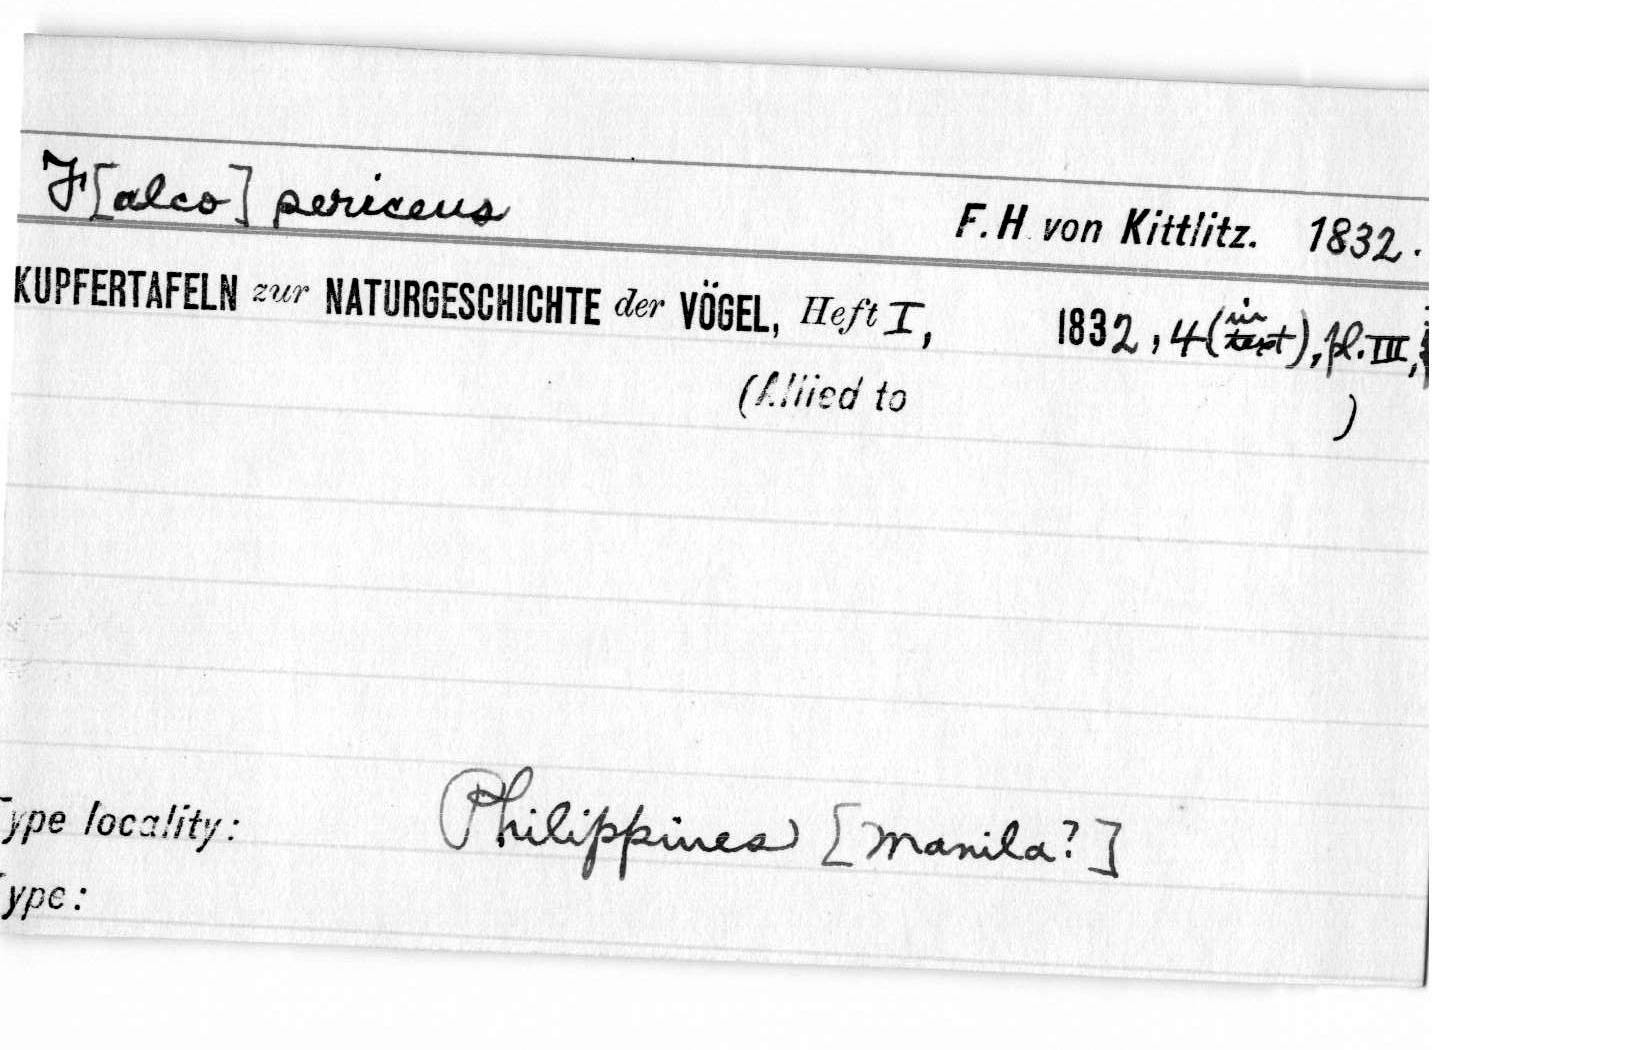 F[alco] periceus
F.H. von Kittlitz. 1832.
KUPFERTAFELN zur NATURGESCHICHTE der VÖGEL, Heft I, 1832, 4 (in text), pl. III,
(Allied to )
Type locality: Philippines [Manila?]
Type: